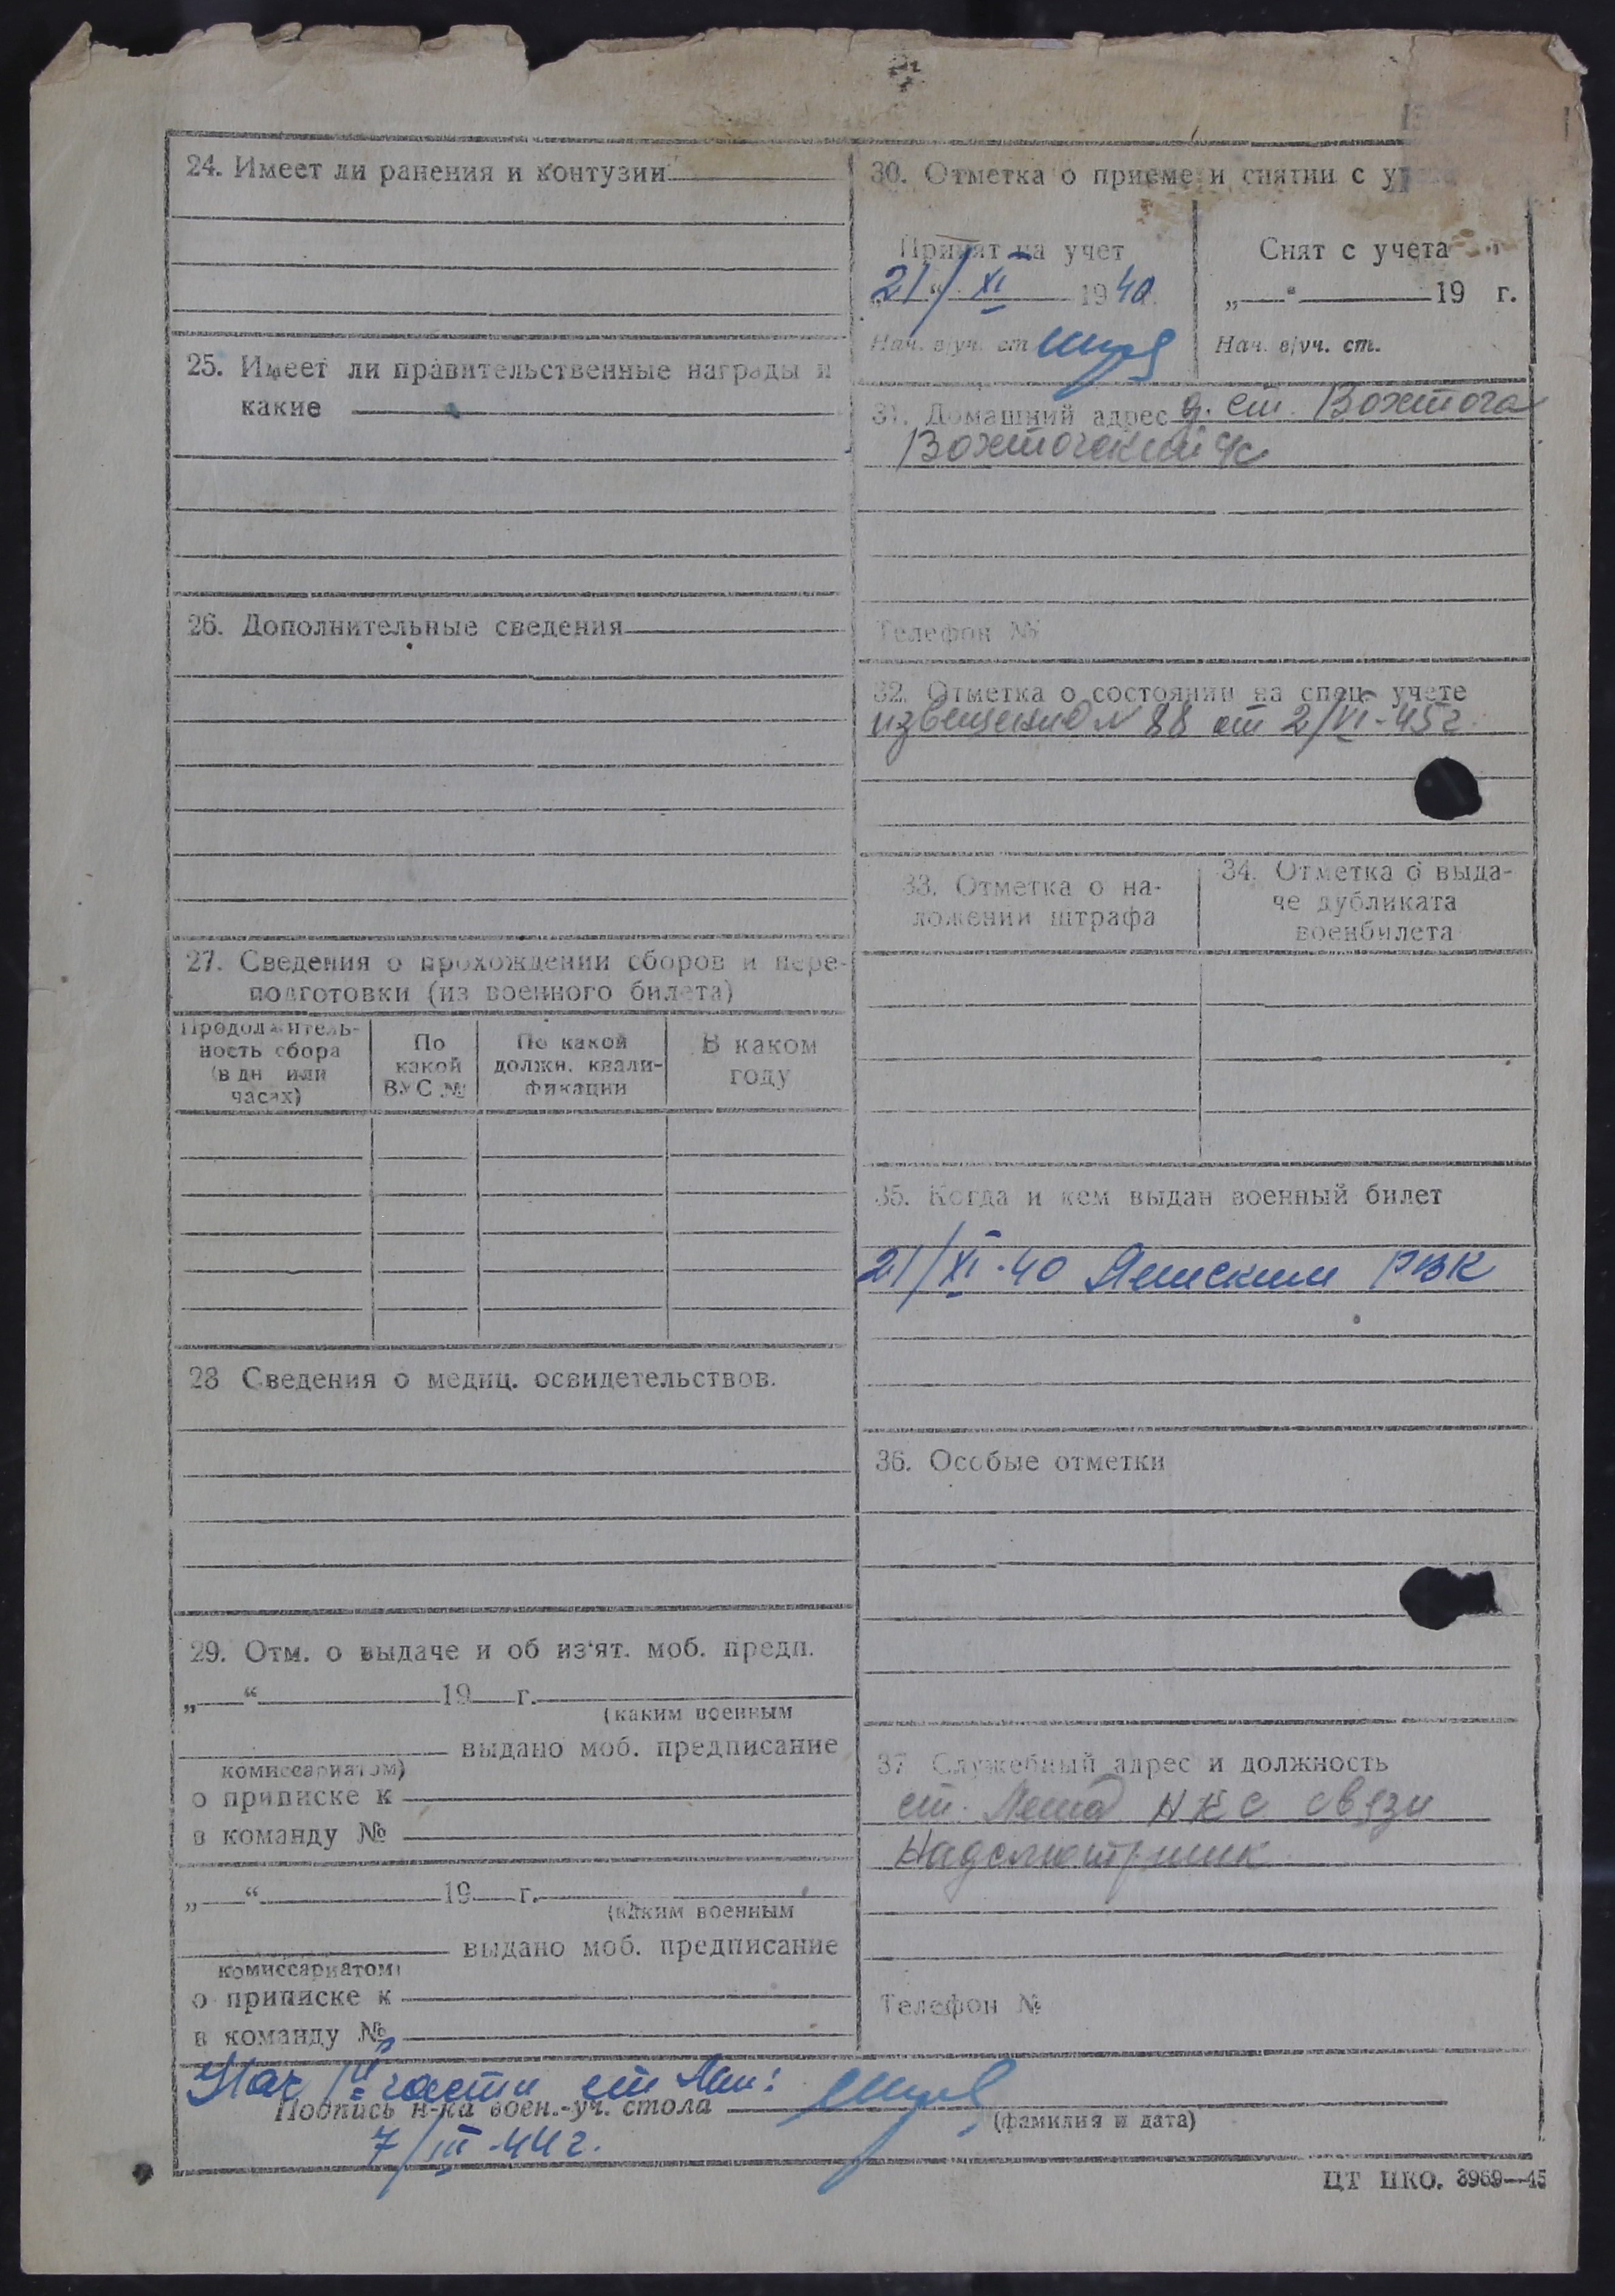 24. Имеет ли ранения и контузии
25. Имеет ли правительственные награды и
какие
26. Дополнительные сведения
27. Сведения о прохождении сборов и пере-
подготовки (из военного билета)
Продолжитель-
ность сбора
(в дн или
часах)
По
какой
ВУС №
По какой
должн. квали-
фикации
В каком
году
28 Сведения о медиц. освидетельствов.
29. Отм. о выдаче и об из'ят. моб. предп.
„ “ 19 г.
(каким военным
выдано моб. предписание
комиссариатом)
о приписке к
в команду №
„ “ 19 г.
(каким военным
выдано моб. предписание
комиссариатом)
о приписке к
в команду №
30. Отметка о приеме и снятии с
Принят на учет
21/XI 1940
Нач. в/уч. ст.
Снят с учета
„ “ 19 г.
Нач. в/уч. ст.
31. Домашний адрес ст. Вохтога
Вохтогский
Телефон №
32. Отметка о состоянии на спец. учете
извещение № 88 от 2/VI-45г.
33. Отметка о на-
ложении штрафа
34. Отметка о выда-
че дубликата
военбилета
35. Когда и кем выдан военный билет
21/XI-40 РВК
36. Особые отметки
37 Служебный адрес и должность
ст. НКС связи
Надсмотрщик
Телефон №
Нач части
Подпись н-ка воен.-уч. стола
(фамилия и дата)
7/III-44г.
ЦТ НКО. 3969—45